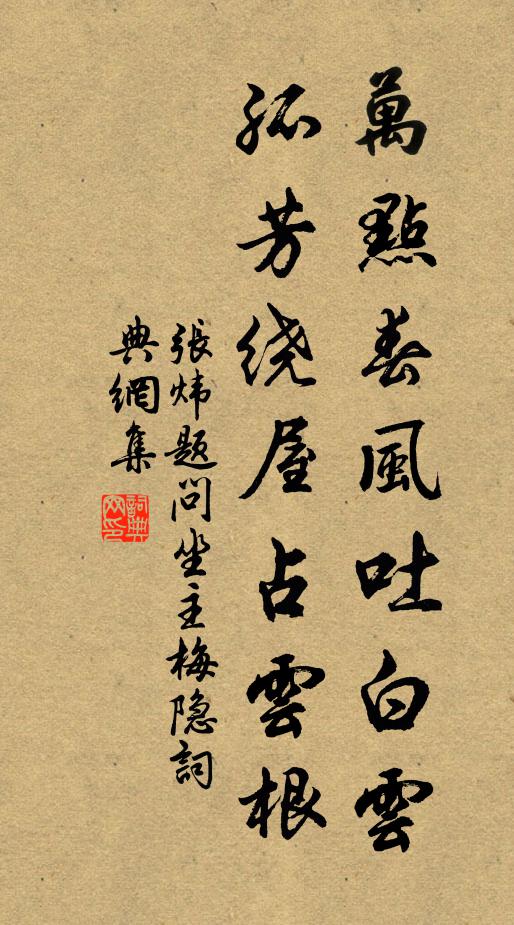 萬點春風吐白雲
孤芳绕屋占雲根
張炜题问坐主梅隐詞
典網集
詞典网印